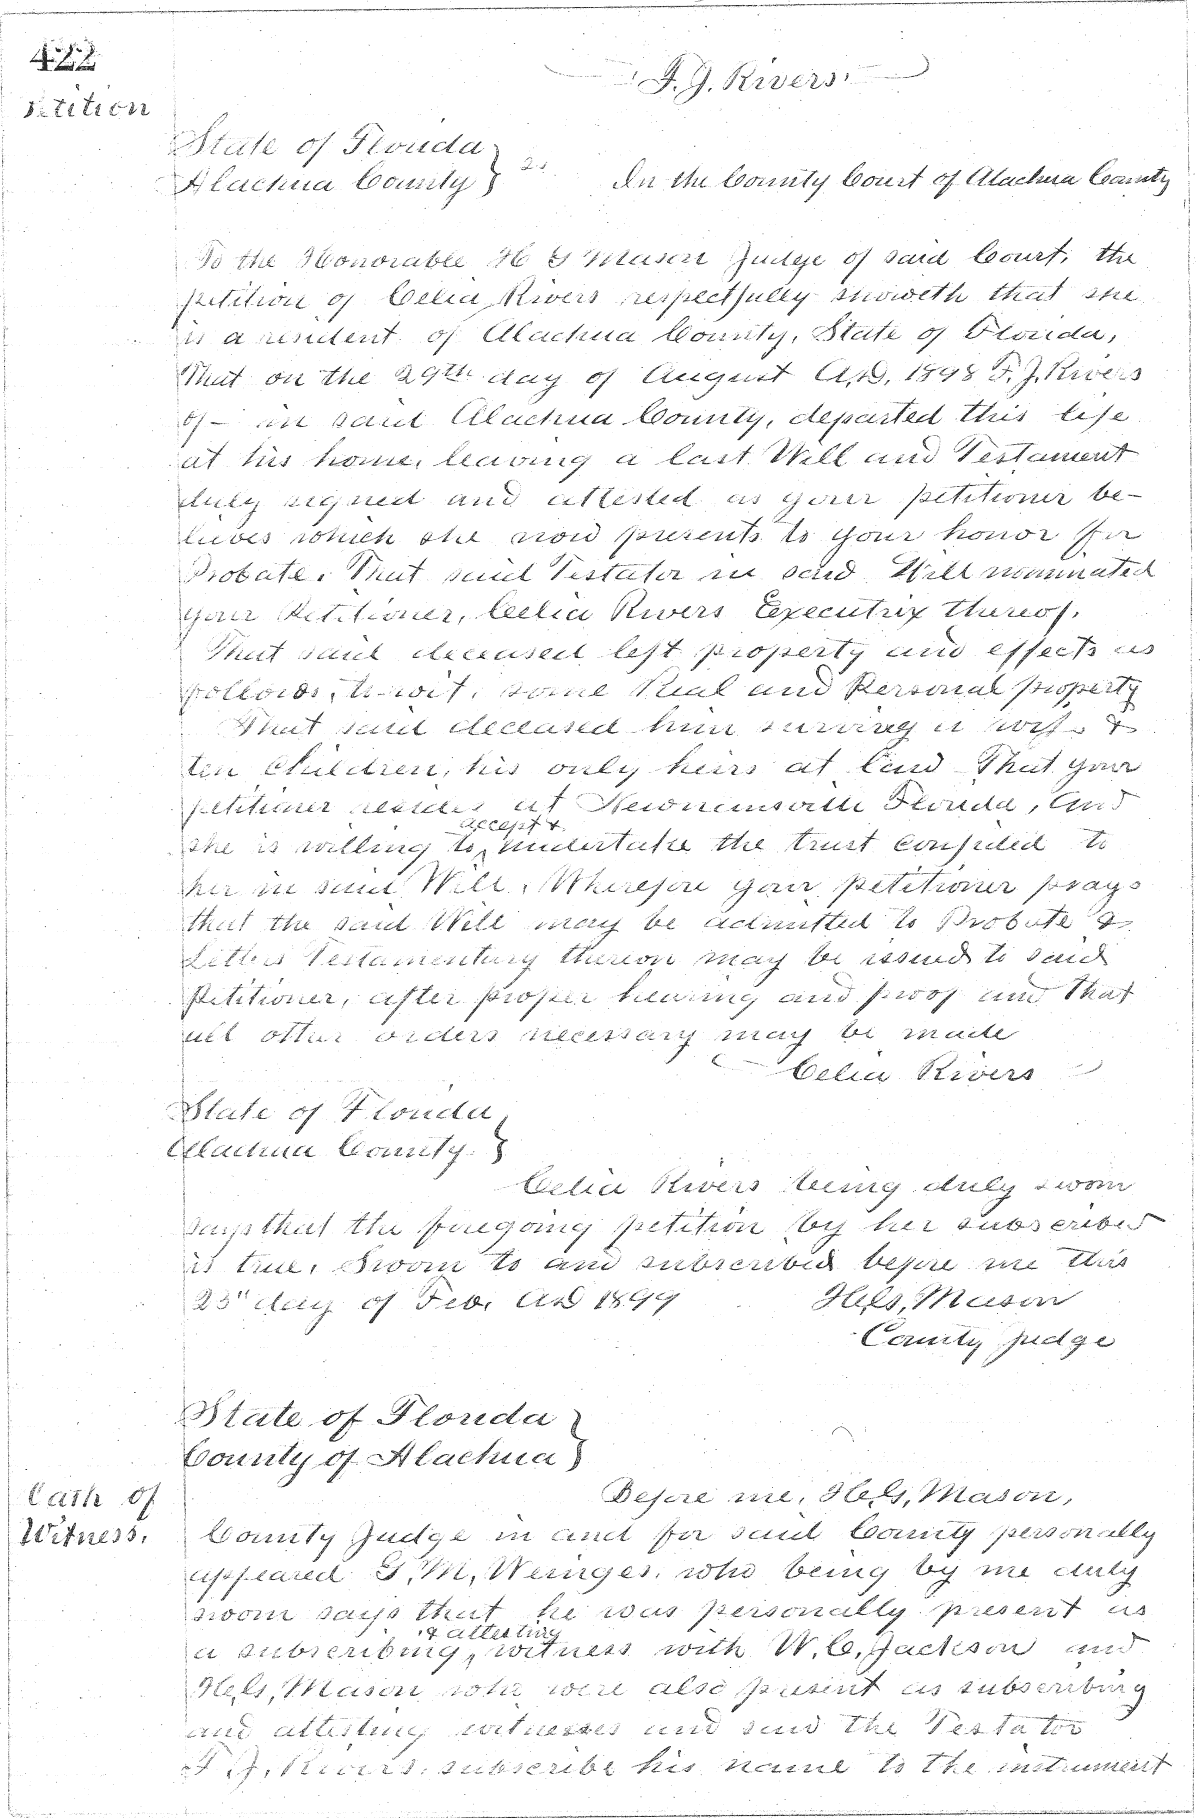 422
Petition
F. J. Rivers
State of Florida }
Alachua County } ss.
In the County Court of Alachua County
To the Honorable H G Mason Judge of said Court, the
petition of Celia Rivers respectfully showeth that she
is a resident of Alachua County, State of Florida,
That on the 29th day of August A.D. 1898 F. J. Rivers
of – in said Alachua County, departed this life
at his home, leaving a last Will and Testament
duly signed and attested as your petitioner be-
lieves which she now presents to your honor for
Probate. That said Testator in said Will nominated
your Petitioner, Celia Rivers Executrix thereof.
That said deceased left property and effects as
follows, to-wit, some Real and Personal property
That said deceased him surviving a wife &
ten children, his only heirs at law That your
petitioner resides at Newnansville Florida, And
she is willing to accept & undertake the trust confided to
her in said Will. Wherefore your petitioner prays
that the said Will may be admitted to Probate &
Letters Testamentary thereon may be issued to said
Petitioner, after proper hearing and proof and that
all other orders necessary may be made
Celia Rivers
State of Florida }
Alachua County }
Celia Rivers being duly sworn
says that the foregoing petition by her subscribed
is true. Sworn to and subscribed before me this
23" day of Feb. A.D 1899 H.G. Mason
County Judge
State of Florida }
County of Alachua }
Oath of
Witness.
Before me, H.G. Mason,
County Judge in and for said County personally
appeared G. M. Weinges. who being by me duly
sworn says that he was personally present as
a subscribing & attesting witness with W. C. Jackson and
H.G. Mason who were also present as subscribing
and attesting witnesses and saw the Testator
F. J. Rivers. subscribe his name to the instrument